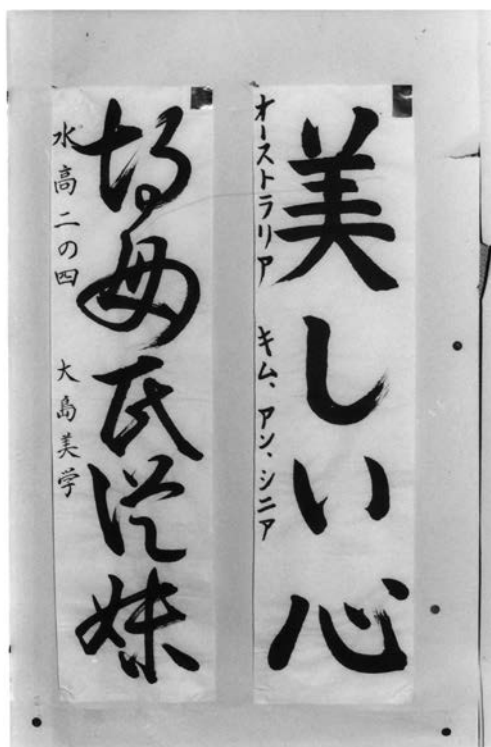 美しい心
オーストラリア キム、アン、シニア
胡母氏従妹
水高二の四 大島美学